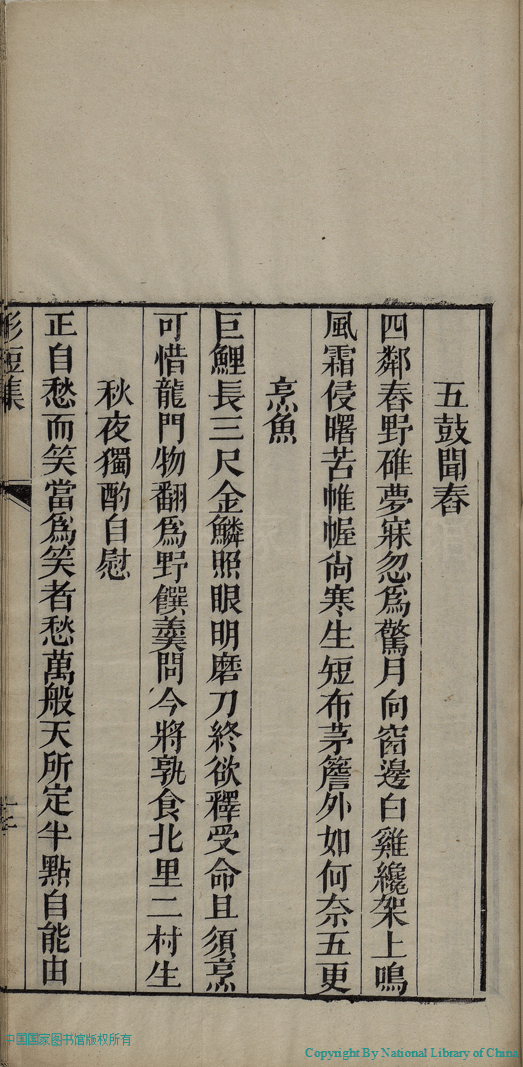 五鼓聞舂
四鄰舂野碓夢寐忽爲驚月向窗邊白雞纔架上鳴
風霜侵曙苦帷幄尙寒生短布茅簷外如何奈五更
烹魚
巨鯉長三尺金鱗照眼明磨刀終欲釋受命且須烹
可惜龍門物翻爲野饌羹問今將孰食北里二村生
秋夜獨酌自慰
正自愁而笑當爲笑者愁萬般天所定半點自能由
短集
中国国家图书馆版权所有
Copyright By National Library of China